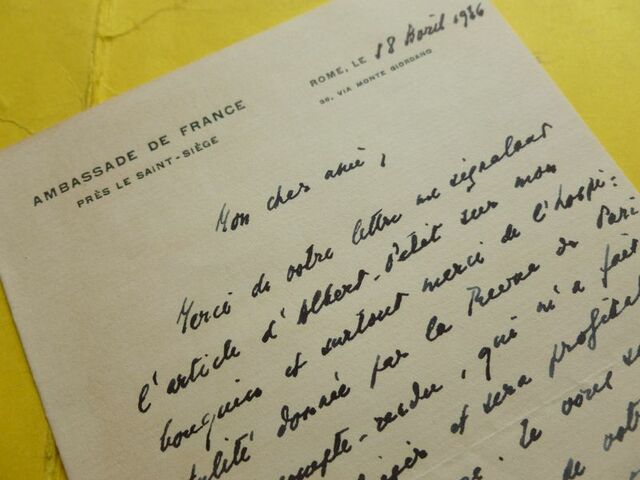 AMBASSADE DE FRANCE
PRÈS LE SAINT-SIÈGE
ROME, LE 18 Avril 1936
36, VIA MONTE GIORDANO
Mon cher ami,
Merci de votre lettre me signalant
l'article d'Albert-Petit sur mon
bouquin et surtout merci de l'hospi-
talité donnée par la Revue de Paris
compte-rendu, qui m'a fait
et sera profitable
Je vous
de votre